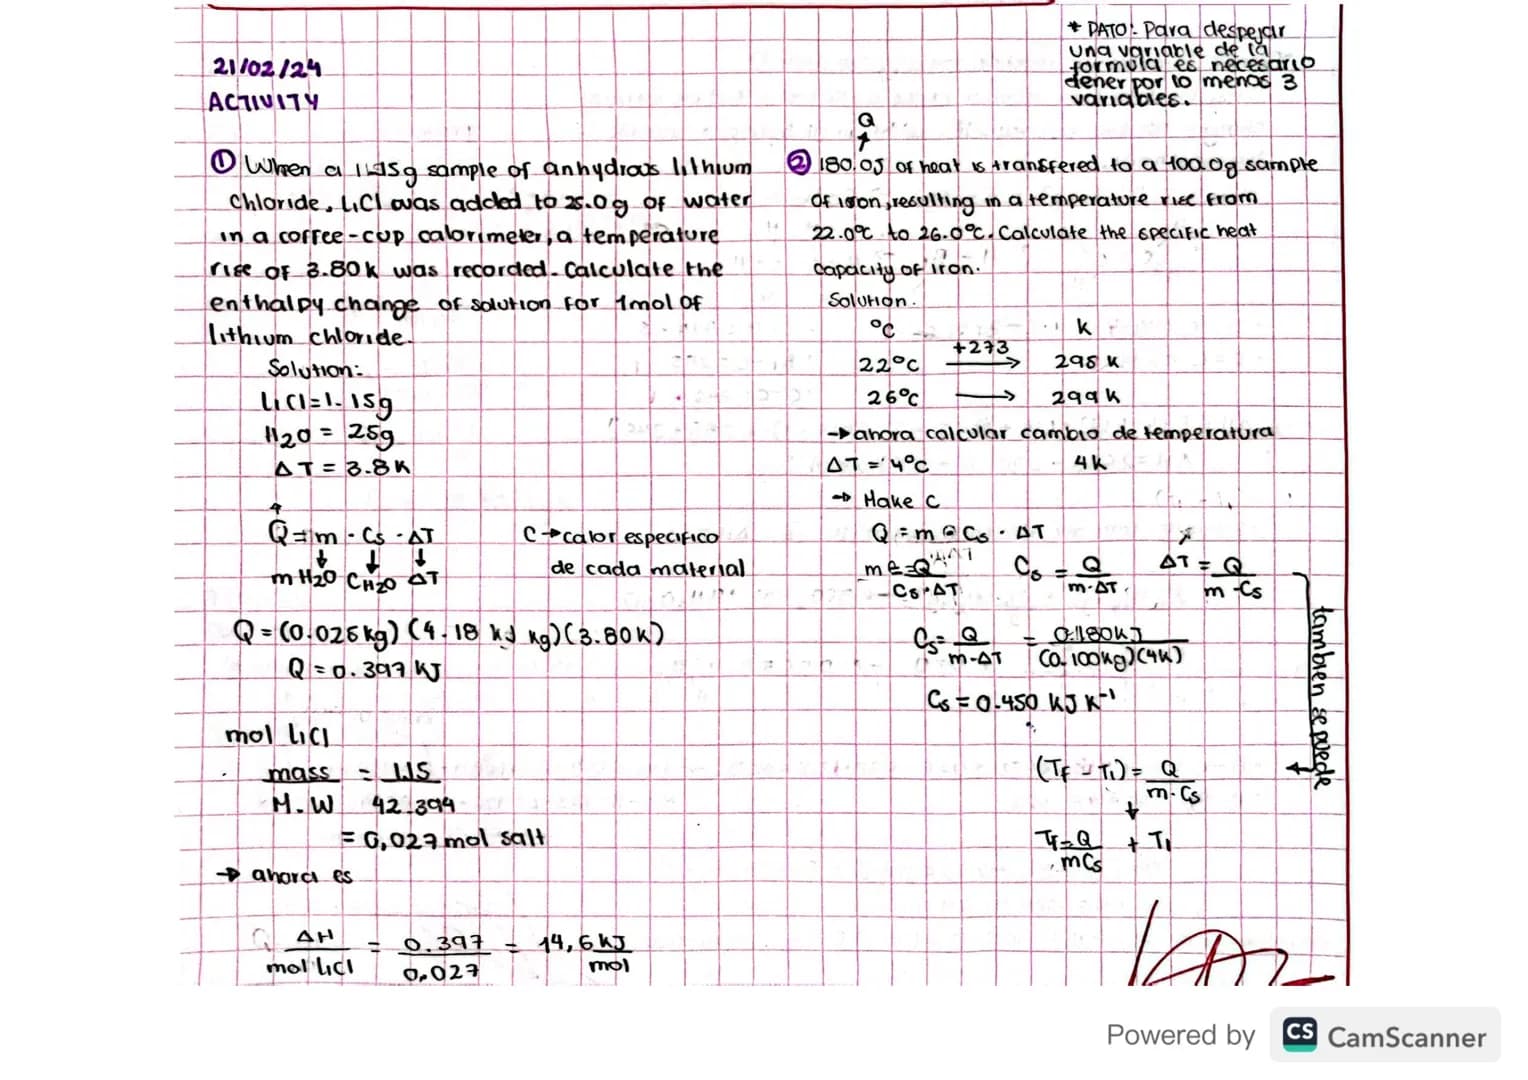 * DATO: Para despejar
una variable de la
formula es necesario
dener por lo menos 3
variables.
21/02/24
ACTIVITY
① When a 1.15g sample of anhydrous lithium
Chloride, LiCl was added to 25.0g of water
in a coffee-cup calorimeter, a temperature
rise of 3.80k was recorded. Calculate the
enthalpy change of solution for 1mol of
lithium chloride.
Solution:
LiCl=1.15g
H2O = 25g
ΔT = 3.8K
Q = m · Cs · ΔT
m H2O CH2O ΔT
C→calor especifico
de cada material
Q = (0.025kg) (4.18 kJ kg)(3.80K)
Q = 0.397 KJ
mol LiCl
mass = 1.15
M.W 42.394
= 0,027 mol salt
→ ahora es
ΔH = 0.397 = 14,6 KJ
mol LiCl 0,027 mol
Q
② 180.0J of heat is transfered to a 100.0g sample
of iron, resulting in a temperature rise from
22.0°C to 26.0°C. Calculate the specific heat
capacity of iron.
Solution.
°C k
22°C +273 → 295 K
26°C → 299 K
→ ahora calcular cambio de temperatura
ΔT = 4°C 4k
→ Make C
Q = m · Cs · ΔT
m = Q Cs = Q ΔT = Q
Cs·ΔT m·ΔT m·Cs
Cs = Q = 0.180KJ
m·ΔT (0.100kg)(4K)
Cs = 0.450 KJ K⁻¹
tambien se puede
(TF - T1) = Q
m·Cs
TF=Q + T1
mCs
Powered by CS CamScanner